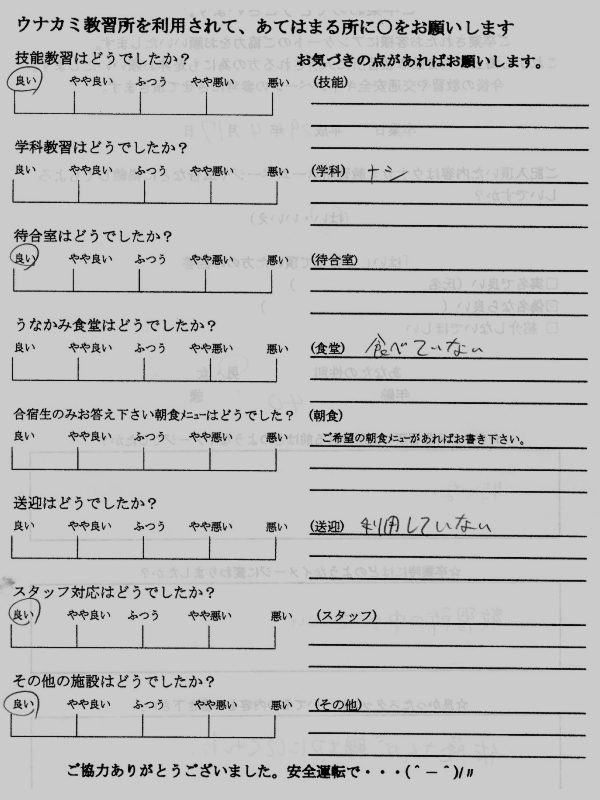 ウナカミ教習所を利用されて、あてはまる所に〇をお願いします
技能教習はどうでしたか?
お気づきの点があればお願いします。
良い やや良い ふつう やや悪い 悪い
(技能)
学科教習はどうでしたか?
良い やや良い ふつう やや悪い 悪い
(学科) ナシ
待合室はどうでしたか?
良い やや良い ふつう やや悪い 悪い
(待合室)
うなかみ食堂はどうでしたか?
良い やや良い ふつう やや悪い 悪い
(食堂) 食べていない
合宿生のみお答え下さい朝食メニューはどうでした? (朝食)
良い やや良い ふつう やや悪い 悪い
ご希望の朝食メニューがあればお書き下さい。
送迎はどうでしたか?
良い やや良い ふつう やや悪い 悪い
(送迎) 利用していない
スタッフ対応はどうでしたか?
良い やや良い ふつう やや悪い 悪い
(スタッフ)
その他の施設はどうでしたか?
良い やや良い ふつう やや悪い 悪い
(その他)
ご協力ありがとうございました。安全運転で・・・(＾－＾)/〃